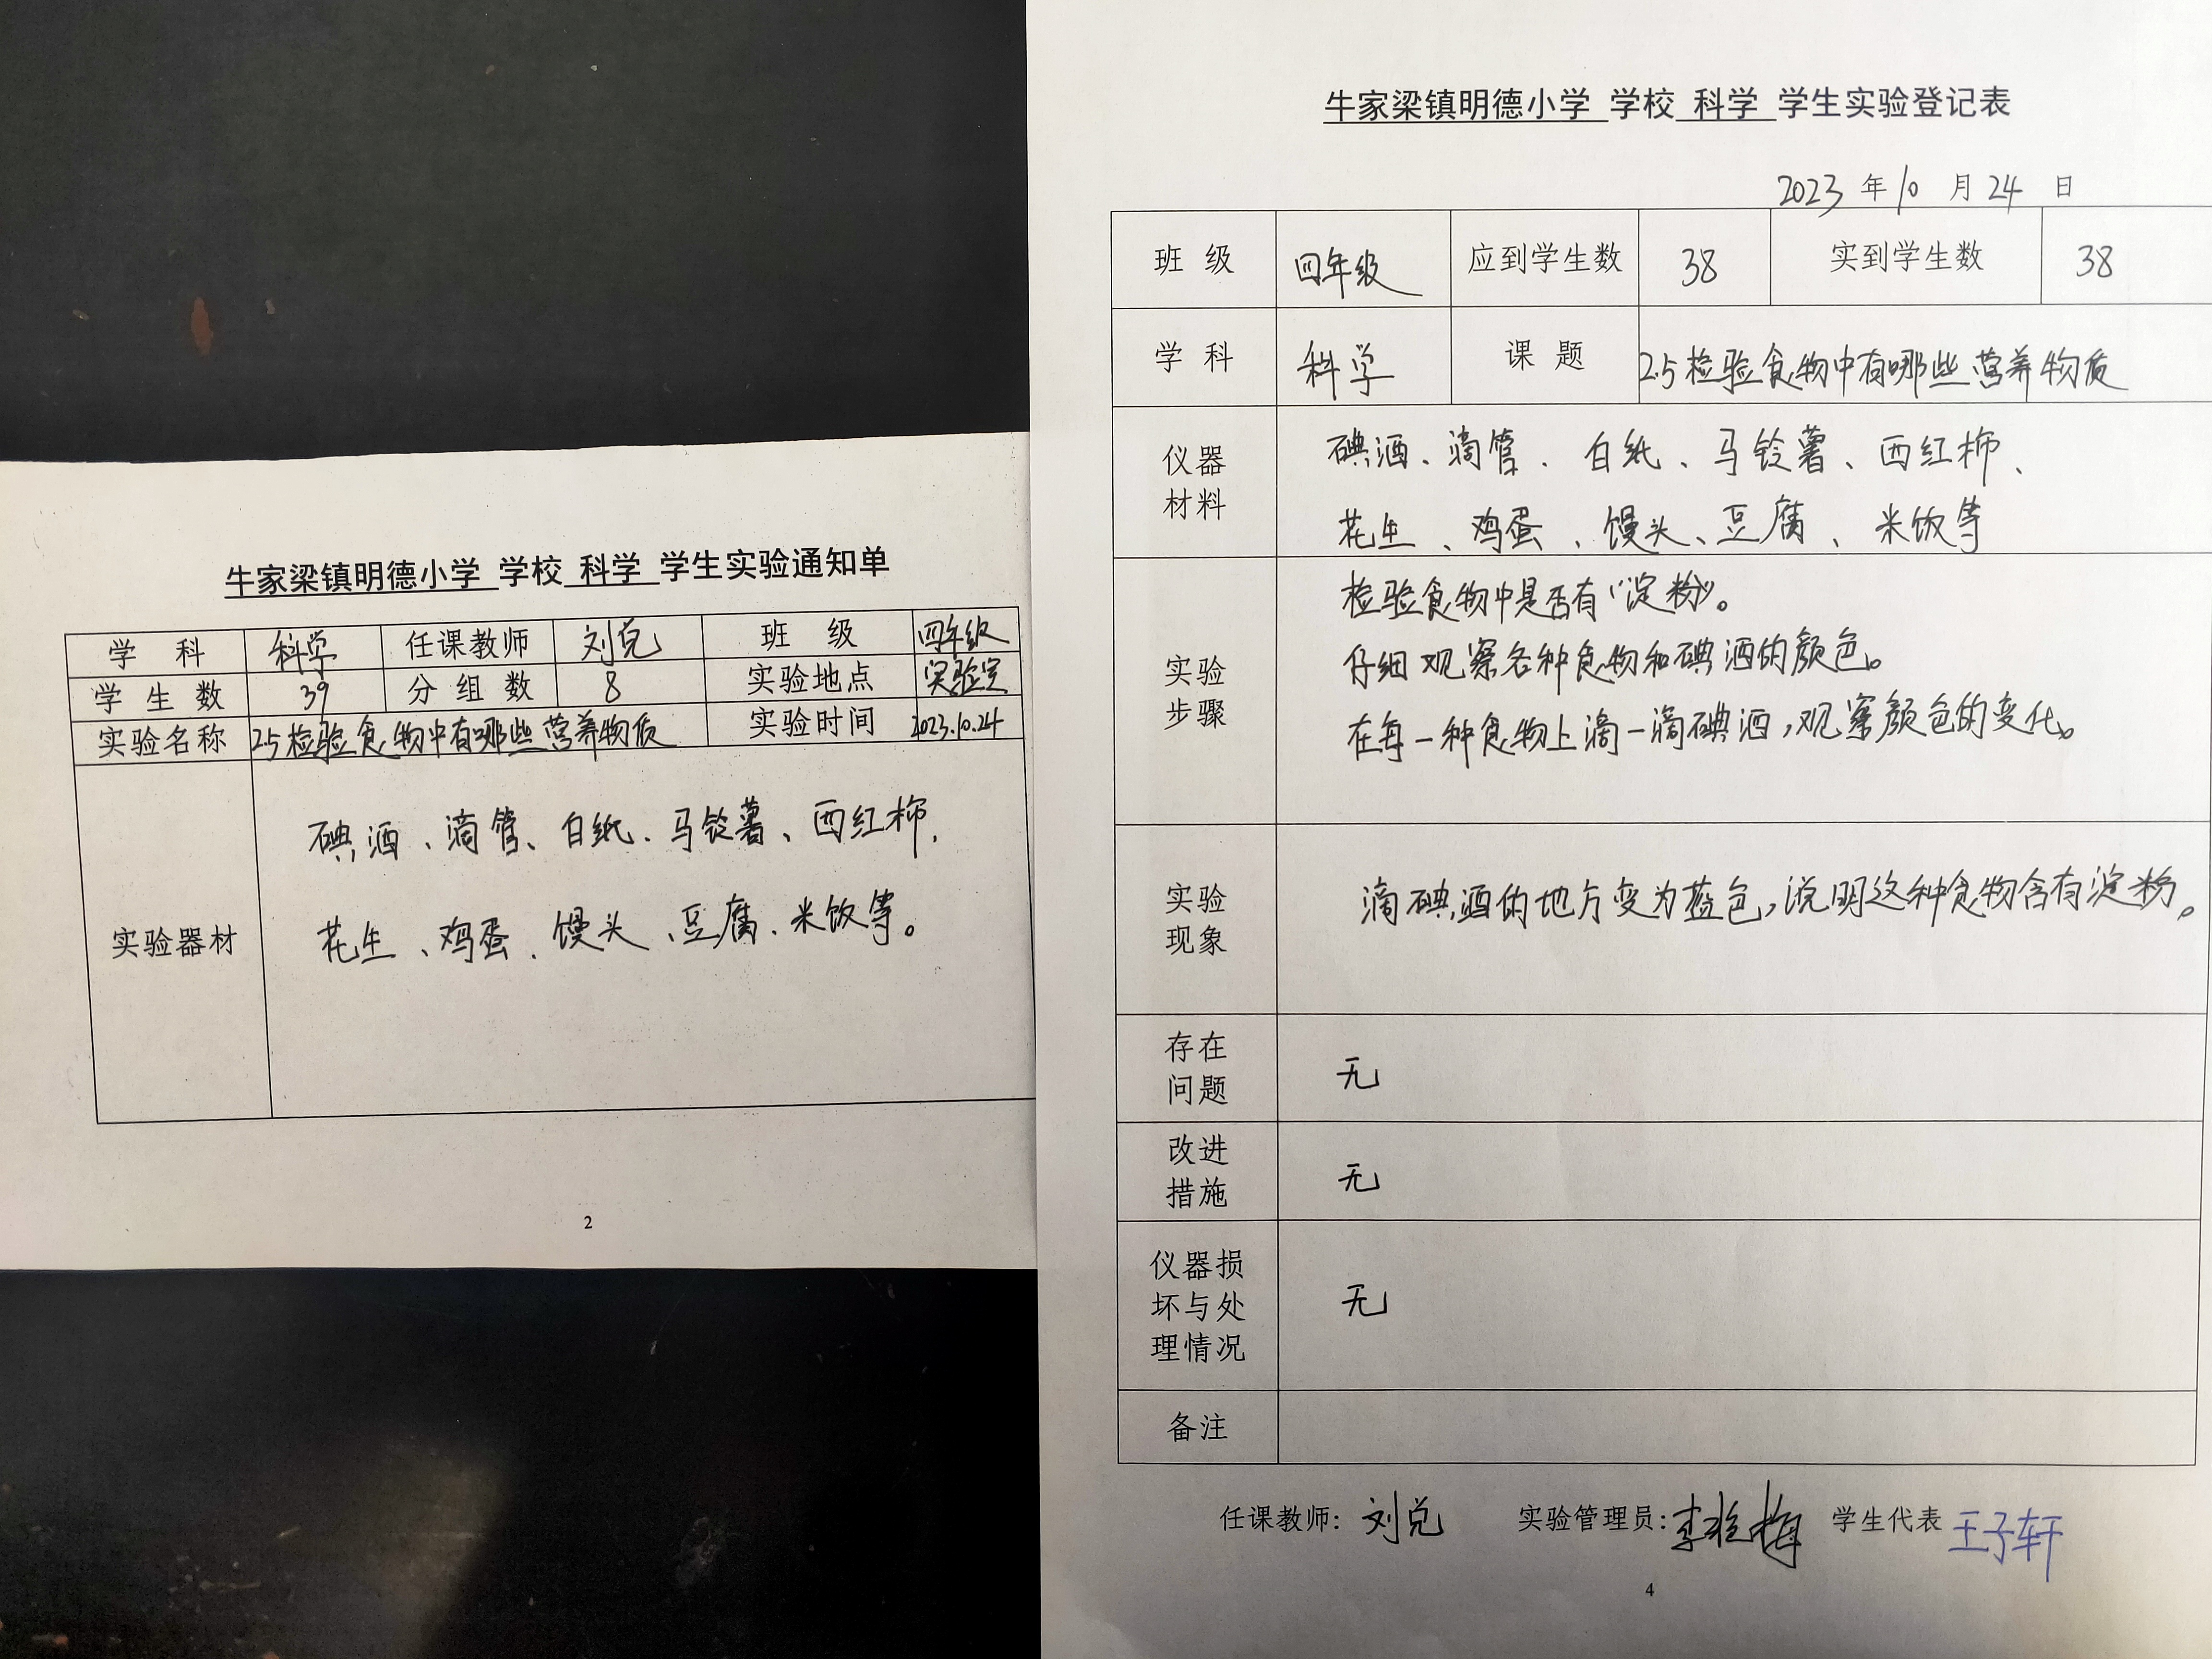 牛家梁镇明德小学 学校 科学 学生实验通知单
学 科 科学 任课教师 刘兑 班 级 四年级
学 生 数 39 分 组 数 8 实验地点 实验室
实验名称 2.5检验食物中有哪些营养物质 实验时间 2023.10.24
实验器材
碘酒、滴管、白纸、马铃薯、西红柿、
花生、鸡蛋、馒头、豆腐、米饭等。
2
牛家梁镇明德小学 学校 科学 学生实验登记表
2023 年 10 月 24 日
班 级 四年级 应到学生数 38 实到学生数 38
学 科 科学 课 题 2.5检验食物中有哪些营养物质
仪器
材料
碘酒、滴管、白纸、马铃薯、西红柿、
花生、鸡蛋、馒头、豆腐、米饭等
实验
步骤
检验食物中是否有“淀粉”。
仔细观察各种食物和碘酒的颜色。
在每一种食物上滴一滴碘酒,观察颜色的变化。
实验
现象
滴碘酒的地方变为蓝色,说明这种食物含有淀粉。
存在
问题
无
改进
措施
无
仪器损
坏与处
理情况
无
备注
任课教师: 刘兑 实验管理员: 学生代表 王子轩
4